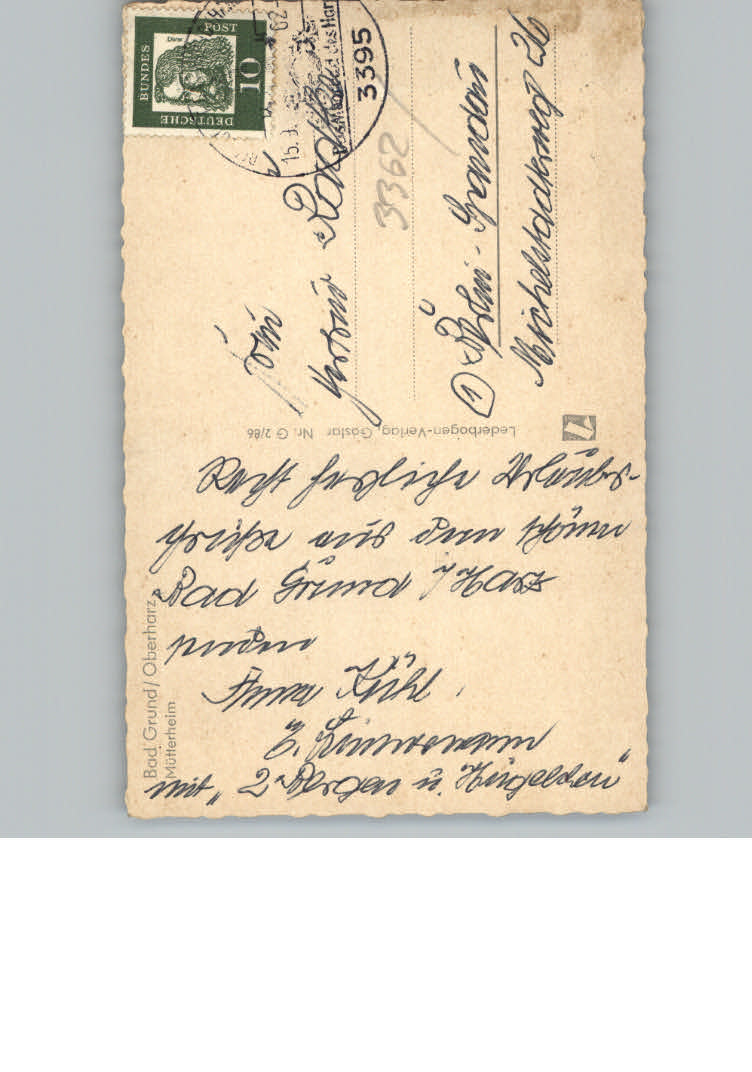 Recht herzliche Urlaubs-
grüße aus dem schönen
Bad Grund / Harz
senden
Anna Kühl
E.
mit „2 Bergen u. Hügelchen"
Bad Grund / Oberharz
Mütterheim
Lederbogen-Verlag, Goslar Nr. G 2/86
Gertrud
① Berlin - Spandau
Michelstadterweg 26
3362
3395
15.9.
62-
DEUTSCHE
BUNDES
POST
10
Dürer